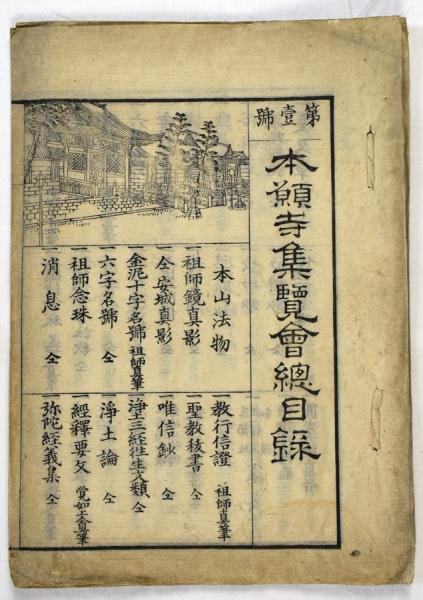 第壹號
本願寺集覽會總目録
本山法物
一祖師鏡真影
一仝安城真影
一金泥十字名號 祖師真筆
一六字名號 仝
一祖師念珠 仝
消息 仝
教行信證 祖師真筆
一聖教秘書 仝
一唯信鈔 仝
浄土三経徃生文類 仝
一浄土論 仝
一經釋要文 覚如上人真筆
弥陀經義集 仝